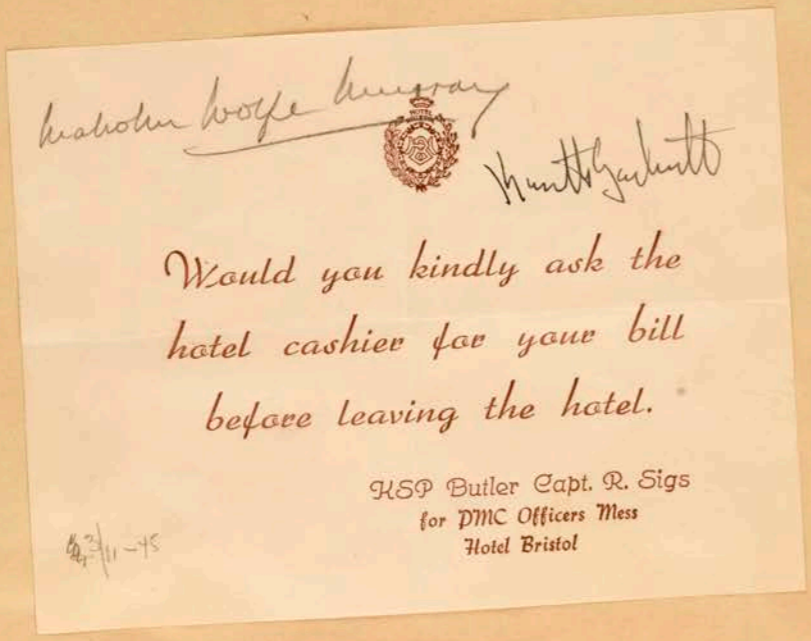 Malcolm Wolfe Murray
HOTEL
Would you kindly ask the
hotel cashier for your bill
before leaving the hotel.
KSP Butler Capt. R. Sigs
for PMC Officers Mess
Hotel Bristol
3/11-45